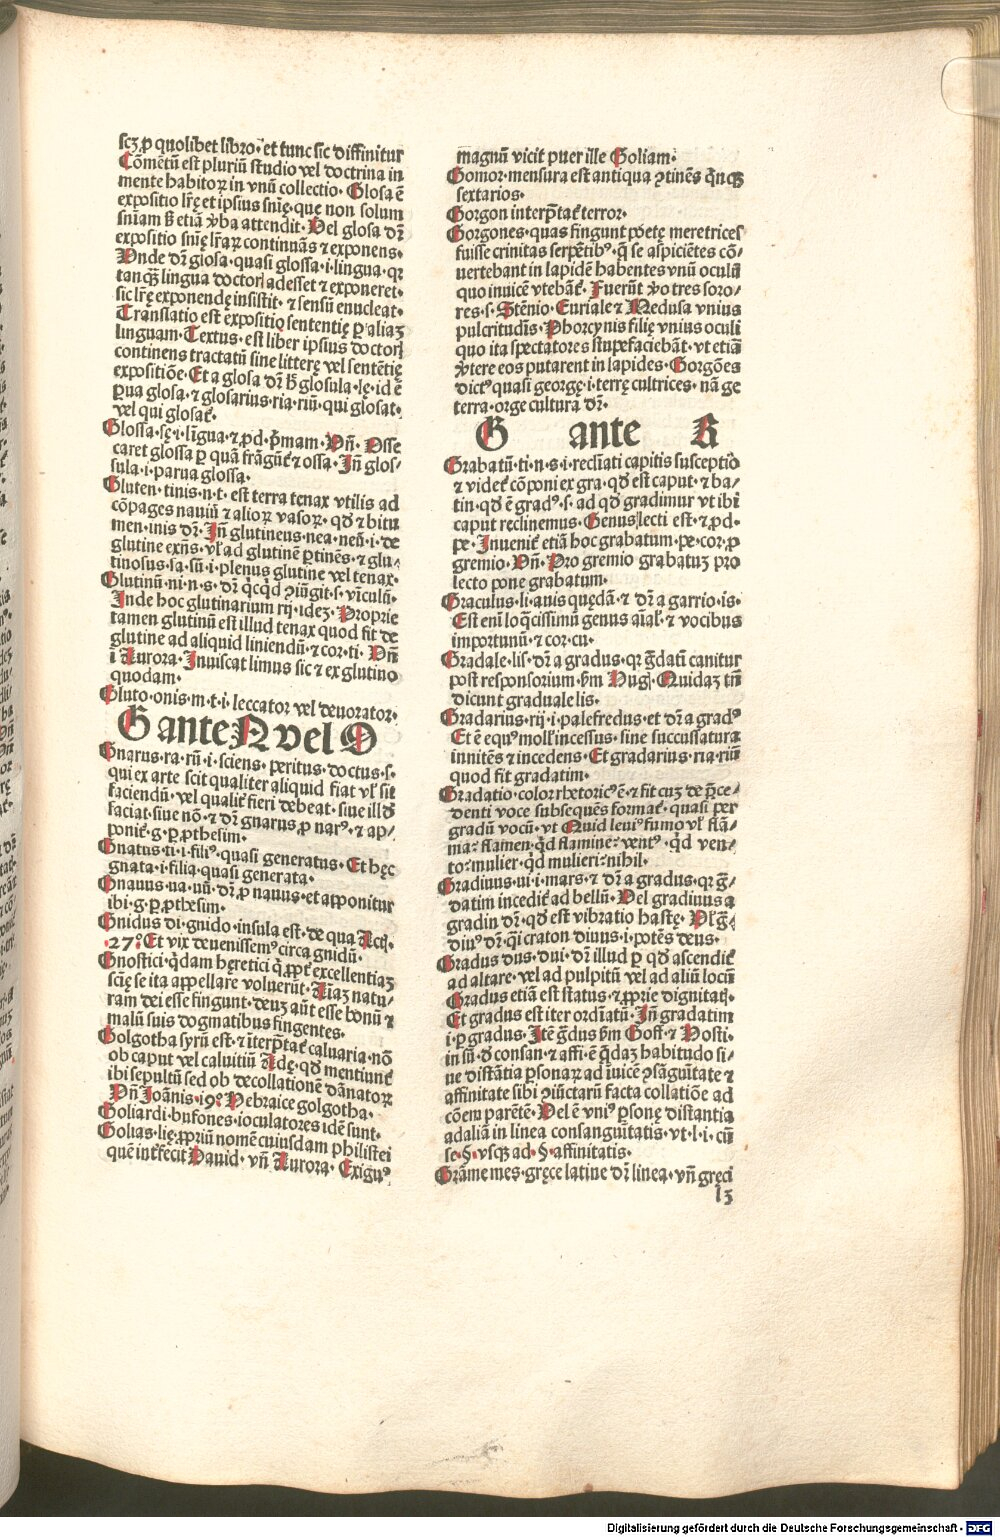 scꝫ ꝑ quolibet libro·et tunc sic diffinitur
Cōmētū est pluriū studio vel doctrina in
mente habitoꝝ in vnū collectio·Glosa ē
expositio lr̄ę et ipsius snīę·que non solum
snīam sꝫ etiā v̓ba attendit·Vel glosa dr̄
expositio snīę lr̄aꝝ continuās ⁊ exponens·
Vnde dr̄ glosa·quasi glossa·i·lingua·qꝛ
tanqꝫ lingua doctorꝭ adesset ⁊ exponeret·
sic lr̄ę exponendę insistit·⁊ sensū enucleat·
Translatio est expositio sententię ꝑ aliaꝫ
linguam·Textus·est liber ipsius doctorꝭ
continens tractatū sine litterę vel sentētię
expositiōe·Et a glosa dr̄ hꝰ glosula·lę·id ē
ꝑua glosa·⁊ glosarius·ria·riū·qui glosat·
vel qui glosaꝉ·
Glossa·sę·i·lingua·⁊ ꝓd·pͥmam·Vn̄·Osse
caret glossa ꝑ quā frāgūꝉ ⁊ ossa·In̄ glos/
sula·i·parua glossa·
Gluten·tinis·n·t·est terra tenax vtilis ad
cōpages nauiū ⁊ alioꝝ vasoꝝ·qd̄ ⁊ bitu
men·inis dr̄·In̄ glutineus·nea·neū·i·de
glutine exn̄s·vl̓ ad glutinē ꝑtinēs·⁊ glu/
tinosus·sa·sū·i·plenus glutine vel tenax·
Glutinū·ni·n·s·dr̄ qͥcqͥd ꝯiūgit·s·vīculū·
Inde hoc glutinarium rij·ideꝫ·Proprie
tamen glutinū est illud tenax quod fit de
glutine ad aliquid liniendū·⁊ cor·ti·Vn̄
ī Aurora·Inuiscat limus sic ⁊ ex glutino
quodam·
Gluto·onis·m·t·i·leccator vel deuorator·
G ante N vel O
Gnarus·ra·rū·i·sciens·peritus·doctus·s·
qui ex arte scit qualiter aliquid fiat vl̓ sit
faciendū·vel qualiꝉ fieri debeat·siue illd̄
faciat·siue nō·⁊ dr̄ gnarus ꝓ narꝰ·⁊ ap/
poniꝉ·g·ꝑ ꝓthesim·
Gnatus·ti·i·filiꝰ·quasi generatus·Et hęc
gnata·i·filia·quasi generata·
Gnauus·na·uū·dr̄ ꝓ nauus·et apponitur
ibi·g·ꝑ ꝓthesim·
Gnidus di·gnido·insula est·de qua Actꝭ·
·27·Et vix deuenissemꝰ circa gnidū·
Gnostici·qͥdam hęretici qͥ ꝓpꝉ excellentiaꝫ
scię se ita appellare voluerūt·Aiaꝫ natu/
ram dei esse fingunt·deuꝫ aūt esse bonū ⁊
malū suis dogmatibus fingentes·
Golgotha syrū est·⁊ īterp̄taꝉ caluaria·nō
ob caput vel caluitiū Adę·qd̄ mentiunꝉ
ibi sepultū sed ob decollationē dānatoꝝ
Vn̄ Joānis·19·Hebraice golgotha·
Goliardi·bufones·ioculatores idē sunt·
Golias·lię·ꝓpriū nomē cuiusdam philistei
quē int̓fecit Dauid·vn̄ Aurora·Exiguꝰ
magnū vicit puer ille Goliam·
Gomor·mensura est antiqua ꝯtinēs qͥnqꝫ
sextarios·
Gorgon interp̄taꝉ terror·
Gorgones·quas fingunt poetę meretrices
fuisse crinitas serpētibꝰ·qͥ se aspiciētes cō/
uertebant in lapidē habentes vnū oculū
quo inuicē vtebāꝉ·Fuerūt v̓o tres soro/
res·s·Stēnio·Euriale ⁊ Medusa vnius
pulcritudīs·Phorcynis filię vnius oculi
quo ita spectatores stupefaciebāt·vt etiā
v̓tere eos putarent in lapides·Gorgōes
dictꝰ quasi georgę·i·terrę cultrices·nā ge
terra·orge cultura dr̄·
G ante R
Grabatū·ti·n·s·i·recliati capitis susceptio
⁊ videꝉ cōponi ex gra·qd̄ est caput·⁊ ba/
tin·qd̄ ē gradꝰ·s·ad qd̄ gradimur vt ibi
caput reclinemus·Genus lecti est·⁊ ꝓd·
pe·Inueniꝉ etiā hoc grabatum·pe·cor·ꝓ
gremio·Vn̄·Pro gremio grabatuꝫ pro
lecto pone grabatum·
Graculus·li·auis quędā·⁊ dr̄ a garrio·is·
Est eni loqͣcissimū genus aīal·⁊ vocibus
importunū·⁊ cor·cu·
Gradale·lis·dr̄ a gradus·qꝛ gͣdatī canitur
post responsorium·sm̄ Hugꝭ·Quidaꝫ tn̄
dicunt graduale lis·
Gradarius·rij·i·palefredus·et dr̄ a gradꝰ
Et ē equꝰ moll̓ incessus·sine succussatura
innitēs ⁊ incedens·Et gradarius·ria·riū
quod fit gradatim·
Gradatio·color rhetoricꝰ ē·⁊ fit cuꝫ de p̄ce/
denti voce subsequēs formaꝉ·quasi per
gradū vocū·vt Quid leuiꝰ fumo vl̓ flā/
ma:flamen·qͥd flamine:ventꝰ·qͥd ven/
to:mulier·qͥd mulieri:nihil·
Gradiuus·ui·i·mars·⁊ dr̄ a gradus·qꝛ gͣ/
datim incediꝉ ad bellū·Vel gradiuus a
gradin dr̄·qd̄ est vibratio hastę·Vl̓ gͣ/
diuꝰ dr̄·qͣsi craton diuus·i·potēs deus·
Gradus dus·dui·dr̄ illud ꝑ qd̄ ascendiꝉ
ad altare·vel ad pulpitū vel ad aliū locū
Gradus etiā est status·⁊ ꝓprie dignitatꝭ·
Et gradus est iter ordiatū·In̄ gradatim
i·ꝑ gradus·Itē gͣdus sm̄ Goff·⁊ Hosti·
in sū·d̓ consan·⁊ affi·ē qͥdaꝫ habitudo si/
ue distātia ꝑsonaꝝ ad iuicē ꝯsāguītate ⁊
affinitate sibi ꝯiūctarū facta collatiōe ad
cōem parētē·Vel ē vniꝰ ꝑsonę distantia
ad aliā in linea consanguītatis·vt·l·i·cū
se·§·vsqꝫ ad·§·affinitatis·
Grāme mes·gręce latine dr̄ linea·vn̄ gręci
l3
Digitalisierung gefördert durch die Deutsche Forschungsgemeinschaft - DFG